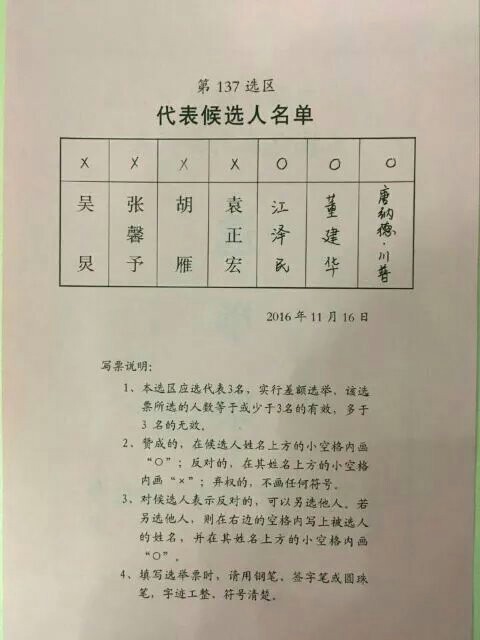 第 137 选区
代表候选人名单
× × × × ○ ○ ○
吴炅 张馨予 胡雁 袁正宏 江泽民 董建华 唐纳德·川普
2016 年 11 月 16 日
写票说明：
1、本选区应选代表3名，实行差额选举、该选
票所选的人数等于或少于3名的有效，多于
3 名的无效。
2、赞成的，在候选人姓名上方的小空格内画
“○”；反对的，在其姓名上方的小空格
内画“×”；弃权的，不画任何符号。
3、对候选人表示反对的，可以另选他人。若
另选他人，则在右边的空格内写上被选人
的姓名，并在其姓名上方的小空格内画
“○”。
4、填写选举票时，请用钢笔、签字笔或圆珠
笔，字迹工整、符号清楚。